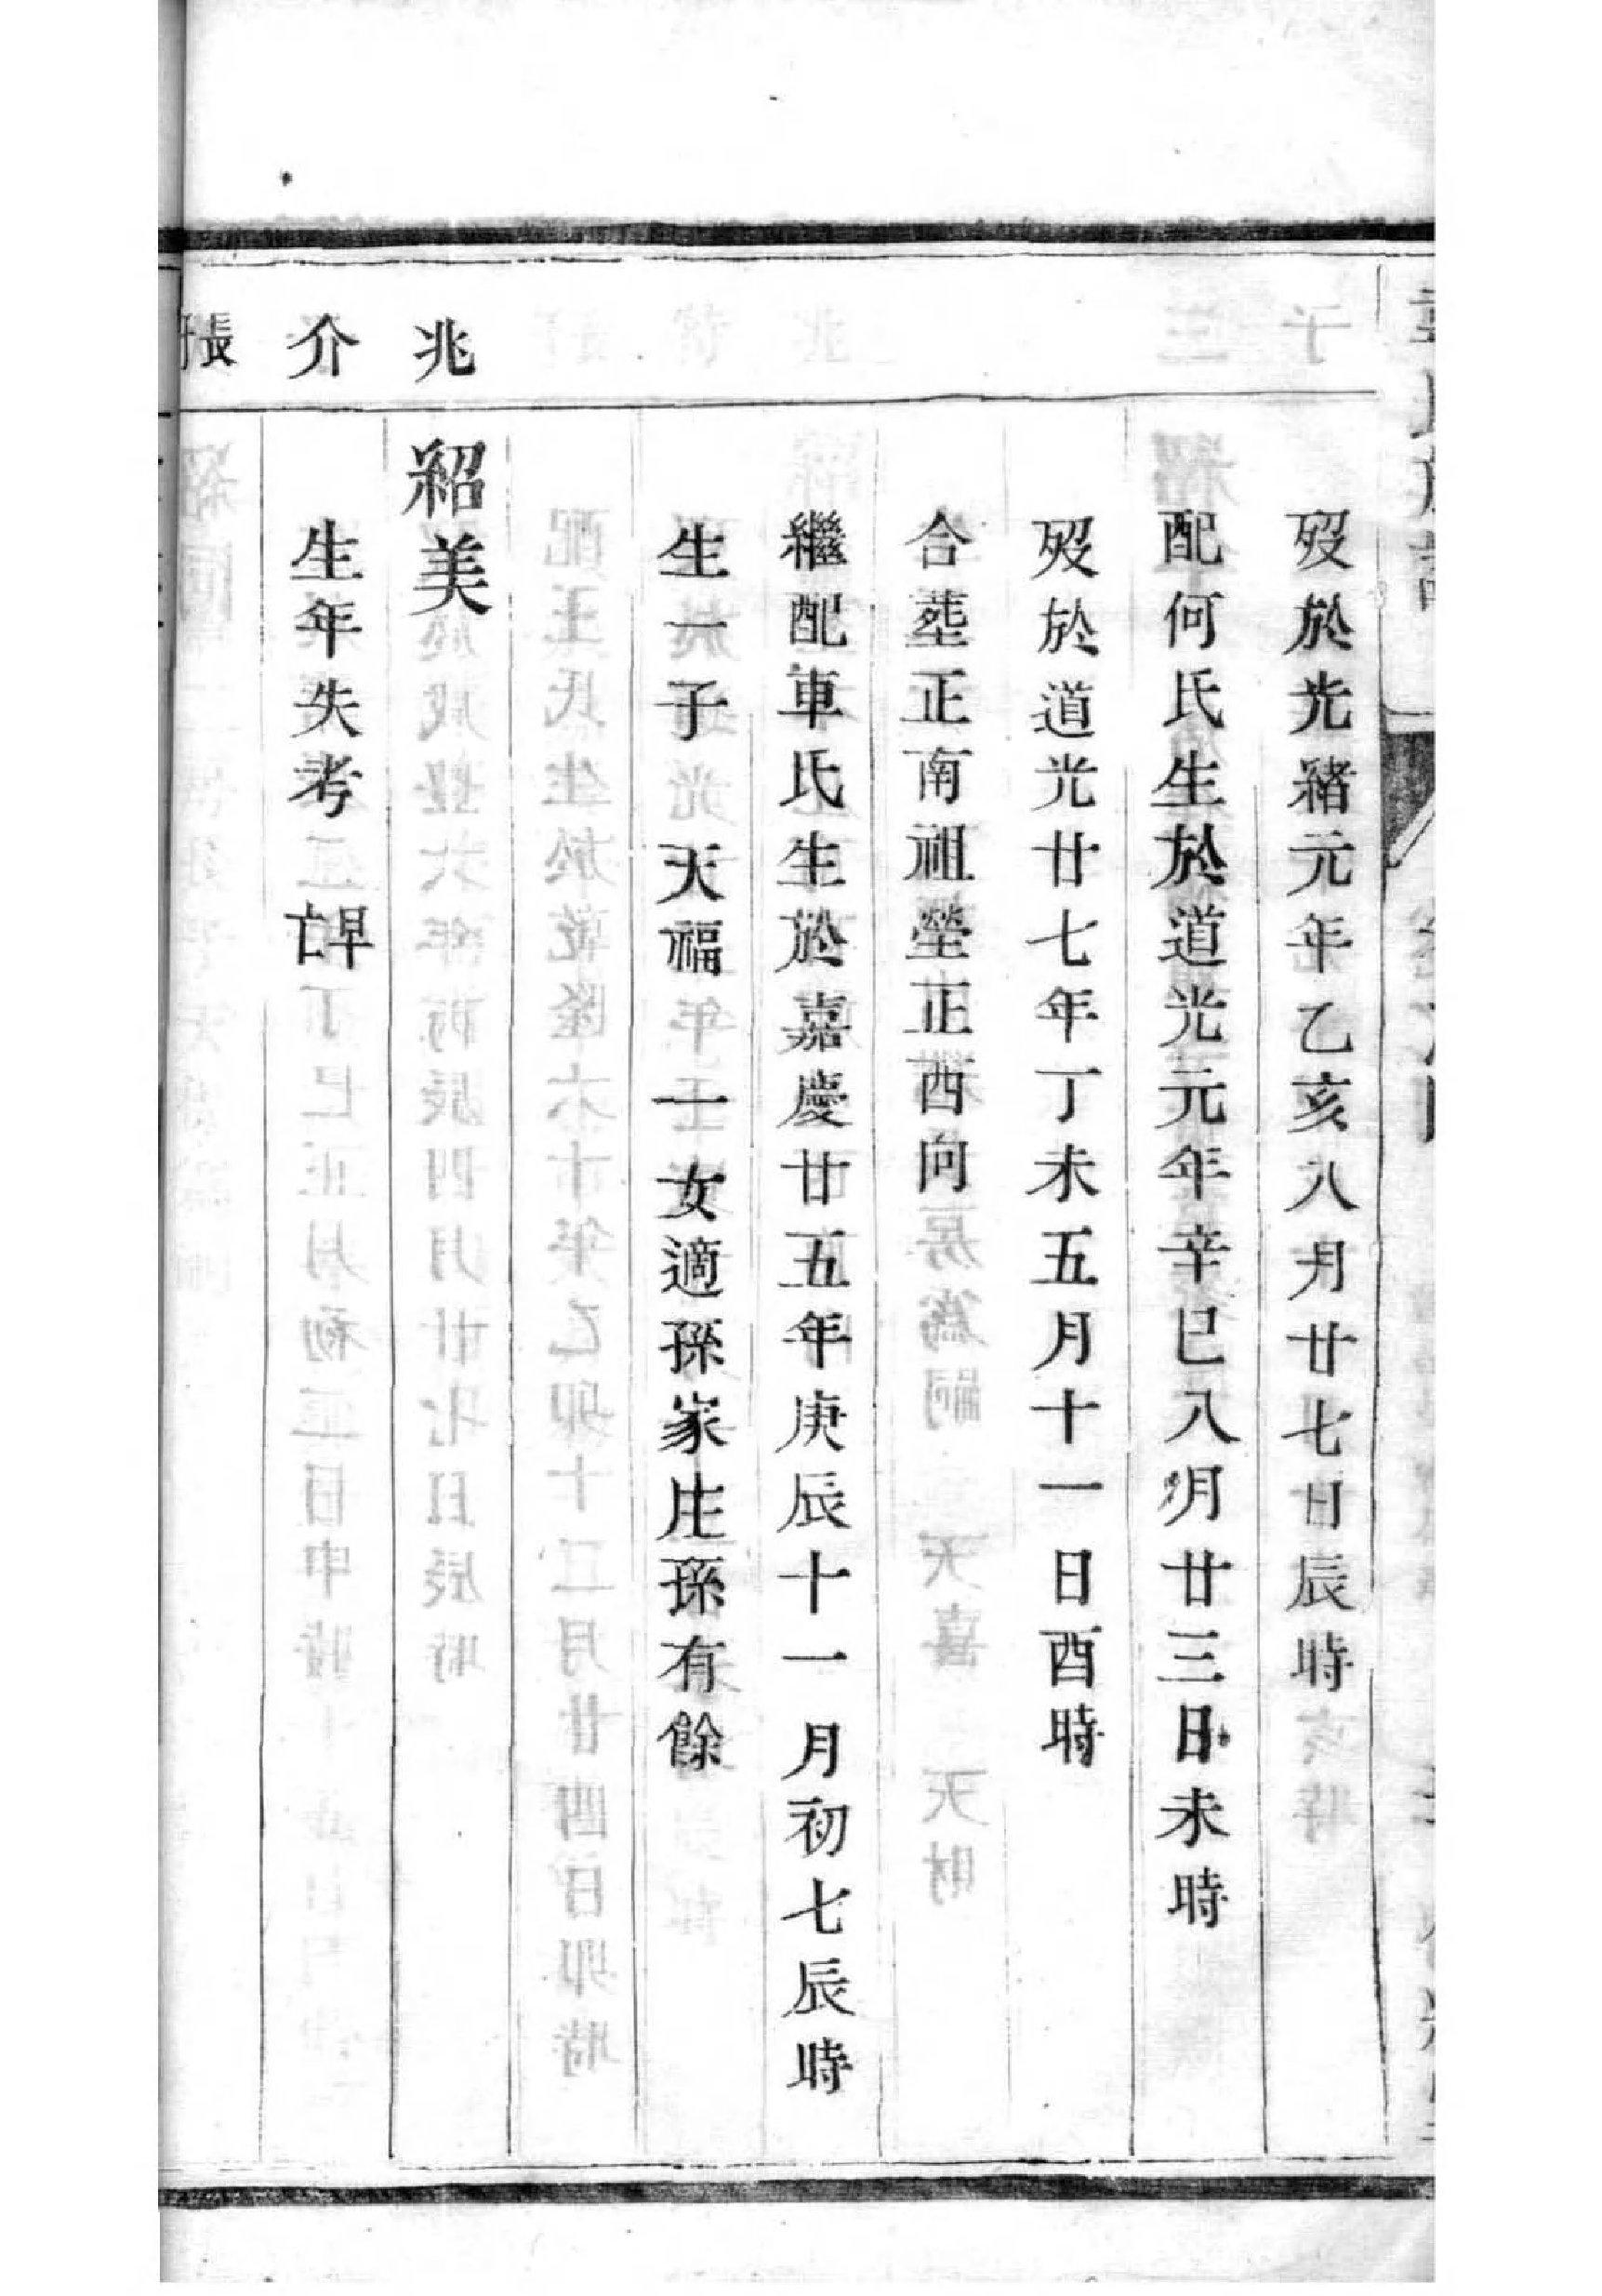 歿於光緒元年乙亥八月廿七日辰時
配何氏生於道光元年辛巳八月廿三日未時
歿於道光廿七年丁未五月十一日酉時
合葬正南祖塋正酉向
繼配車氏生於嘉慶廿五年庚辰十一月初七辰時
生一子 天福 一女適孫家庄孫有餘
兆
紹美
介
生年失考 早亡
張